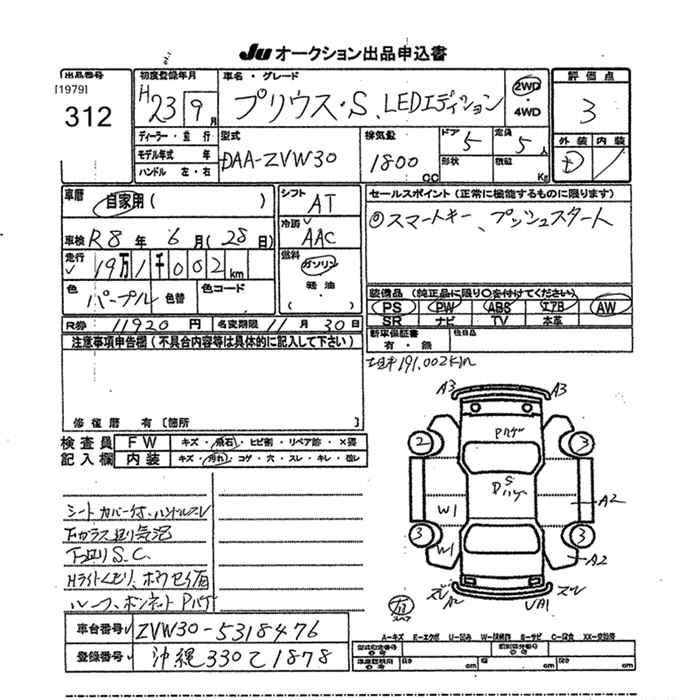 JU オークション出品申込書
出品番号
[1979]
312
初度登録年月
H23 9月
車名・グレード
プリウス・S、LEDエディション
2WD
・
4WD
評価点
3
外装 内装
D
ディーラー・並行
モデル年式 年
ハンドル 左・右
型式
DAA-ZVW30
排気量
1800 CC
ドア
5
形状
定員
5人
積載
Kg
車歴
自家用 ( )
車検 R8年 6月(28日)
走行 19万1千002km
色 パープル 色替 色コード
シフト
AT
冷房
AAC
燃料
ガソリン
軽油
( )
セールスポイント (正常に機能するものに限ります)
◎スマートキー、プッシュスタート
装備品 (純正品に限り○を付けてください)
PS PW ABS エアB AW
SR ナビ TV 本革
R券 11920円 名変期限 11月30日
新車保証書 有・無
付日品
注意事項申告欄 (不具合内容等は具体的に記入して下さい)
191.002km
修復歴 有 [箇所 ]
検査員 FW キズ・飛石・ヒビ割・リペア跡・×要
記入欄 内装 キズ・汚れ・コゲ・穴・スレ・キレ・極レ
シートカバー付、ハンドルスレ
Fガラス辺り気泡
下廻りS.C.
Hライトくもり、
ルーフ、ボンネットPハゲ
A3 A3
Pハゲ
2 3
S
Pハゲ
W1 A2
3 3
W1 A2
ズレ ズレ
A2 UA1
スペア
車台番号 ZVW30-5318476
登録番号 沖縄330て1878
A-キズ E-エクボ U-凹み W-板金跡 S-サビ C-腐食 XX-交換等
型式指定番号
類別区分番号
長さ cm 幅 cm 高さ cm